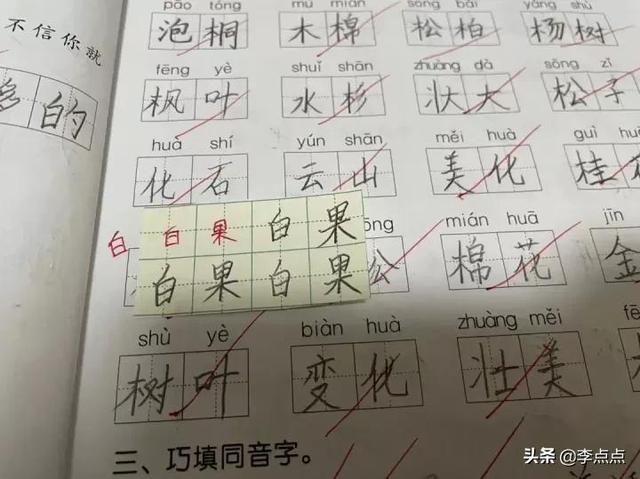 不信你就
的
pāo tóng mù mián sōng bǎi yáng shù
泡桐 木棉 松柏 杨树
fēng yè shuǐ shān zhuàng dà sōng zǐ
枫叶 水杉 壮大 松子
huà shí yún shān měi huà guì
化石 云山 美化 桂
ōng mián huā jīn
白 白果白果 公 棉花 金
白果白果
shù yè biàn huà zhuàng měi fē
树叶 变化 壮美
三、巧填同音字。
头条 @李点点